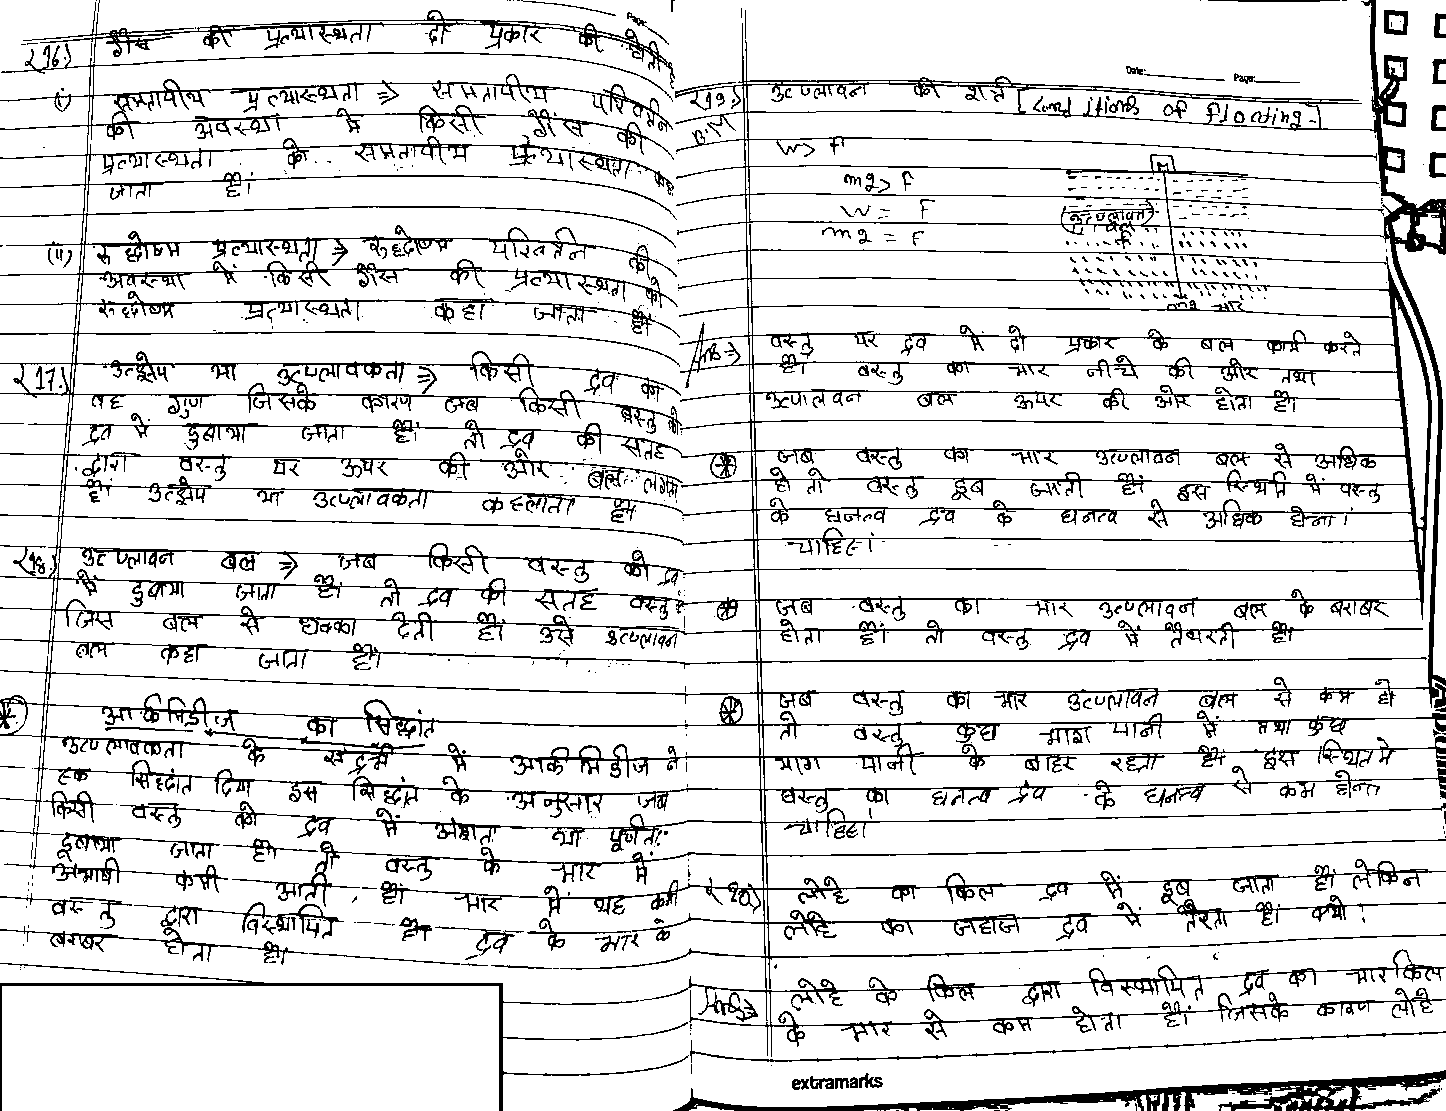 Page:
(16) गैस की प्रत्यास्थता दो प्रकार की होती
(i) समतापीय प्रत्यास्थता ⇒ समतापीय परिवर्तन
की अवस्था में किसी गैस की
प्रत्यास्थता को समतापीय प्रत्यास्थता कहा
जाता है।
(ii) रुद्धोष्म प्रत्यास्थता ⇒ रुद्धोष्म परिवर्तन की
अवस्था में किसी गैस की प्रत्यास्थता को
रुद्धोष्म प्रत्यास्थता कहा जाता है।
(17) उत्क्षेप या उत्प्लावकता ⇒ किसी द्रव का
वह गुण जिसके कारण जब किसी वस्तु को
द्रव में डुबाया जाता है। तो द्रव की सतह
द्वारा वस्तु पर ऊपर की ओर बल लगता
है। उत्क्षेप या उत्प्लावकता कहलाता है।
(18) उत्प्लावन बल ⇒ जब किसी वस्तु को द्रव
में डुबाया जाता है। तो द्रव की सतह वस्तु
जिस बल से धक्का देती है। उसे उत्प्लावन
बल कहा जाता है।
आर्कमिडीज का सिद्धांत
उत्प्लावकता के संदर्भ में आर्कमिडीज ने
एक सिद्धांत दिया इस सिद्धांत के अनुसार जब
किसी वस्तु को द्रव में अंशतः या पूर्णतः
डुबाया जाता है। तो वस्तु के भार में
आभाषी कमी आती है। भार में यह कमी
वस्तु द्वारा विस्थापित द्रव के भार के
बराबर होता है।
Date: Page:
(19) उत्प्लावन की शर्त [Conditions of floating-]
W > F
mg > F
W = F
mg = F
M
(उत्प्लावन)
बल
F
mg भार
Ans ⇒ वस्तु पर द्रव में दो प्रकार के बल कार्य करते
है। वस्तु का भार नीचे की ओर तथा
उत्पालवन बल ऊपर की ओर होता है।
जब वस्तु का भार उत्पलावन बल से अधिक
हो तो वस्तु डूब जाती है। इस स्थिति में वस्तु
के घनत्व द्रव के घनत्व से अधिक होना।
चाहिए।
जब वस्तु का भार उत्पलावन बल के बराबर
होता है। तो वस्तु द्रव में तैयरती है।
जब वस्तु का भार उत्पलावन बल से कम हो
तो वस्तु कुछ भाग पानी में तथा कुछ
भाग पानी के बाहर रहता है। इस स्थित मे
वस्तु का घनत्व द्रव के घनत्व से कम होना
चाहिए।
(20) लोहे का किल द्रव में डूब जाता है। लेकिन
लोहे का जहाज द्रव में तैरता है। क्यो?
Ans ⇒ लोहे के किल द्वारा विस्थापित द्रव का भार किल
के भार से कम होता है। जिसके कारण लोहे
extramarks